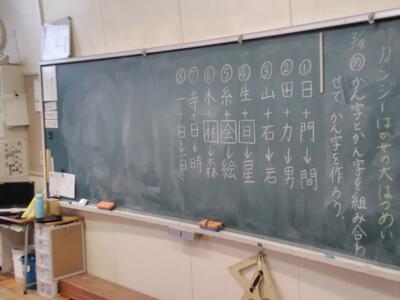 カンジーはかせの大はつめい
3/8 め かん字とかん字を組み合わ
せて、かん字を作ろう。
①日+門→間
②田+力→男
③山+石→岩
④生+日→星
⑤糸+会→絵
⑥木+林→森
⑦寺+日→時
⑧一+白→百